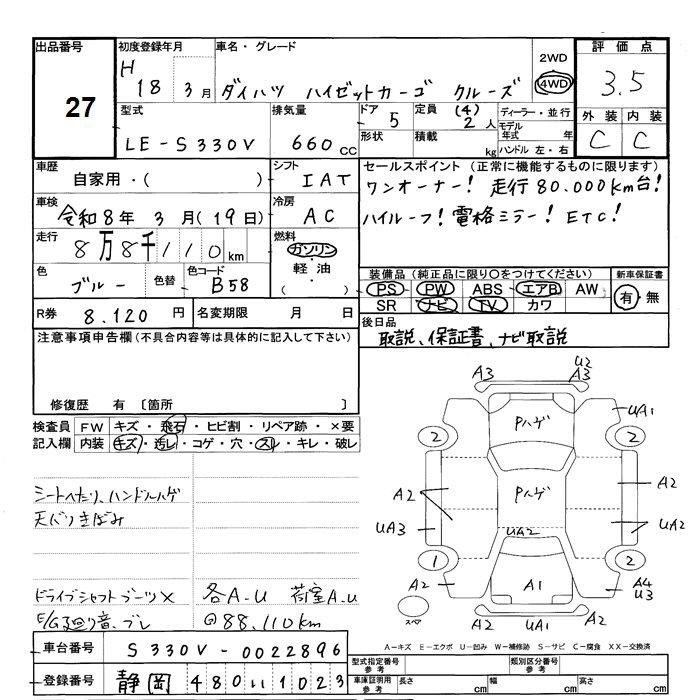 出品番号 初度登録年月 車名・グレード 2WD 評価点
27 H 18 3月 ダイハツ ハイゼットカーゴ クルーズ 4WD 3.5
型式 排気量 ドア 定員 (4) ディーラー・並行 外装 内装
LE-S330V 660 CC 5 2人 モデル年式 年 C C
形状 積載 kg ハンドル 左・右
車歴 自家用・( ) シフト IAT セールスポイント (正常に機能するものに限ります)
ワンオーナー! 走行80.000km台!
車検 令和8年 3月(19日) 冷房 AC ハイルーフ! 電格ミラー! ETC!
走行 8万8千110km 燃料 ガソリン・軽油・( )
色 ブルー 色替 色コード B58
装備品 (純正品に限り○をつけてください) 新車保証書
PS PW ABS エアB AW 有・無
SR ナビ TV カワ
R券 8.120円 名変期限 月 日 後日品
取説、保証書、ナビ取説
注意事項申告欄(不具合内容等は具体的に記入して下さい)
修復歴 有 〔箇所 〕
検査員記入欄 FW キズ・飛石・ヒビ割・リペア跡・×要
内装 キズ・汚レ・コゲ・穴・スレ・キレ・破レ
シートへたり、ハンドルハゲ
天バリきばみ
ドライブシャフトブーツ× 各A.U 荷室A.U
E/G廻り音、ブレ 88,110km
A3 U2 A3
UA1
Pハゲ
2 2
Pハゲ
A2 A2
UA3 UA2 UA2
1 2
A2 A1 A4 U3
スペア
A2 UA1 A2
A-キズ E-エクボ U-凹み W-補修跡 S-サビ C-腐食 XX-交換済
車台番号 S330V-0022896
登録番号 静岡 480い1023
型式指定番号 参考 類別区分番号 参考
車庫証明用 参考 長さ cm 幅 cm 高さ cm